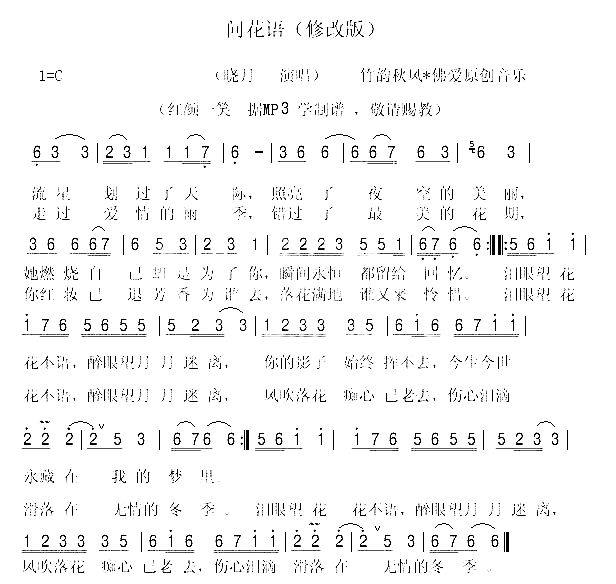 问花语（修改版）
1=C （晓月 演唱） 竹韵秋风*佛爱原创音乐
（红颜一笑 据MP3 学制谱 ，敬请赐教）
6 3 3 | 2 3 1 1 1 7 | 6 - | 3 6 6 | 6 6 7 6 3 | 5 6 3 |
流 星 划 过 了 天 际，照亮 了 夜 空 的 美 丽，
走 过 爱 情 的 雨 季，错过 了 最 美 的 花 期，
3 6 6 6 7 | 6 5 3 | 2 3 1 | 2 2 2 3 2 3 5 5 1 | 6 7 6 6 :||: 5 6 1 1 |
她燃 烧 自 己 坦 是 为 了 你，瞬间永恒 都留给 回 忆。 泪眼望 花
你红 妆 已 退 芳 香 为 谁 去，落花满地 谁又来 怜 惜。 泪眼望 花
1 7 6 5 6 5 5 | 5 2 3 3 | 1 2 2 3 3 5 | 6 1 6 6 7 1 1 |
花不语，醉眼望月 月 迷 离， 你的影子 始终 挥不去，今生今世
花不语，醉眼望月 月 迷 离， 风吹落花 痴心 已老去，伤心泪滴
2 2 2 | 2 5 3 | 6 7 6 6 :|| 5 6 1 1 | 1 7 6 5 6 5 5 | 5 2 3 3 |
永藏 在 我 的 梦 里。
滑落 在 无情的 冬 季 。泪眼望 花 花不语，醉眼望月 月 迷 离，
1 2 3 3 3 5 | 6 1 6 6 7 1 1 | 2 2 2 | 2 5 3 | 6 7 6 6 ||
风吹落花 痴心 已 老 去，伤心泪滴 滑落 在 无情的 冬 季 。